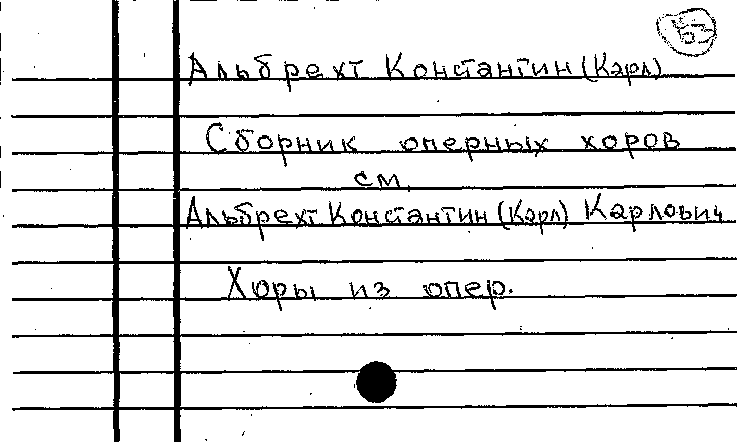 53
Альбрехт Константин (Карл)
Сборник оперных хоров
см.
Альбрехт Константин (Карл) Карлович
Хоры из опер.